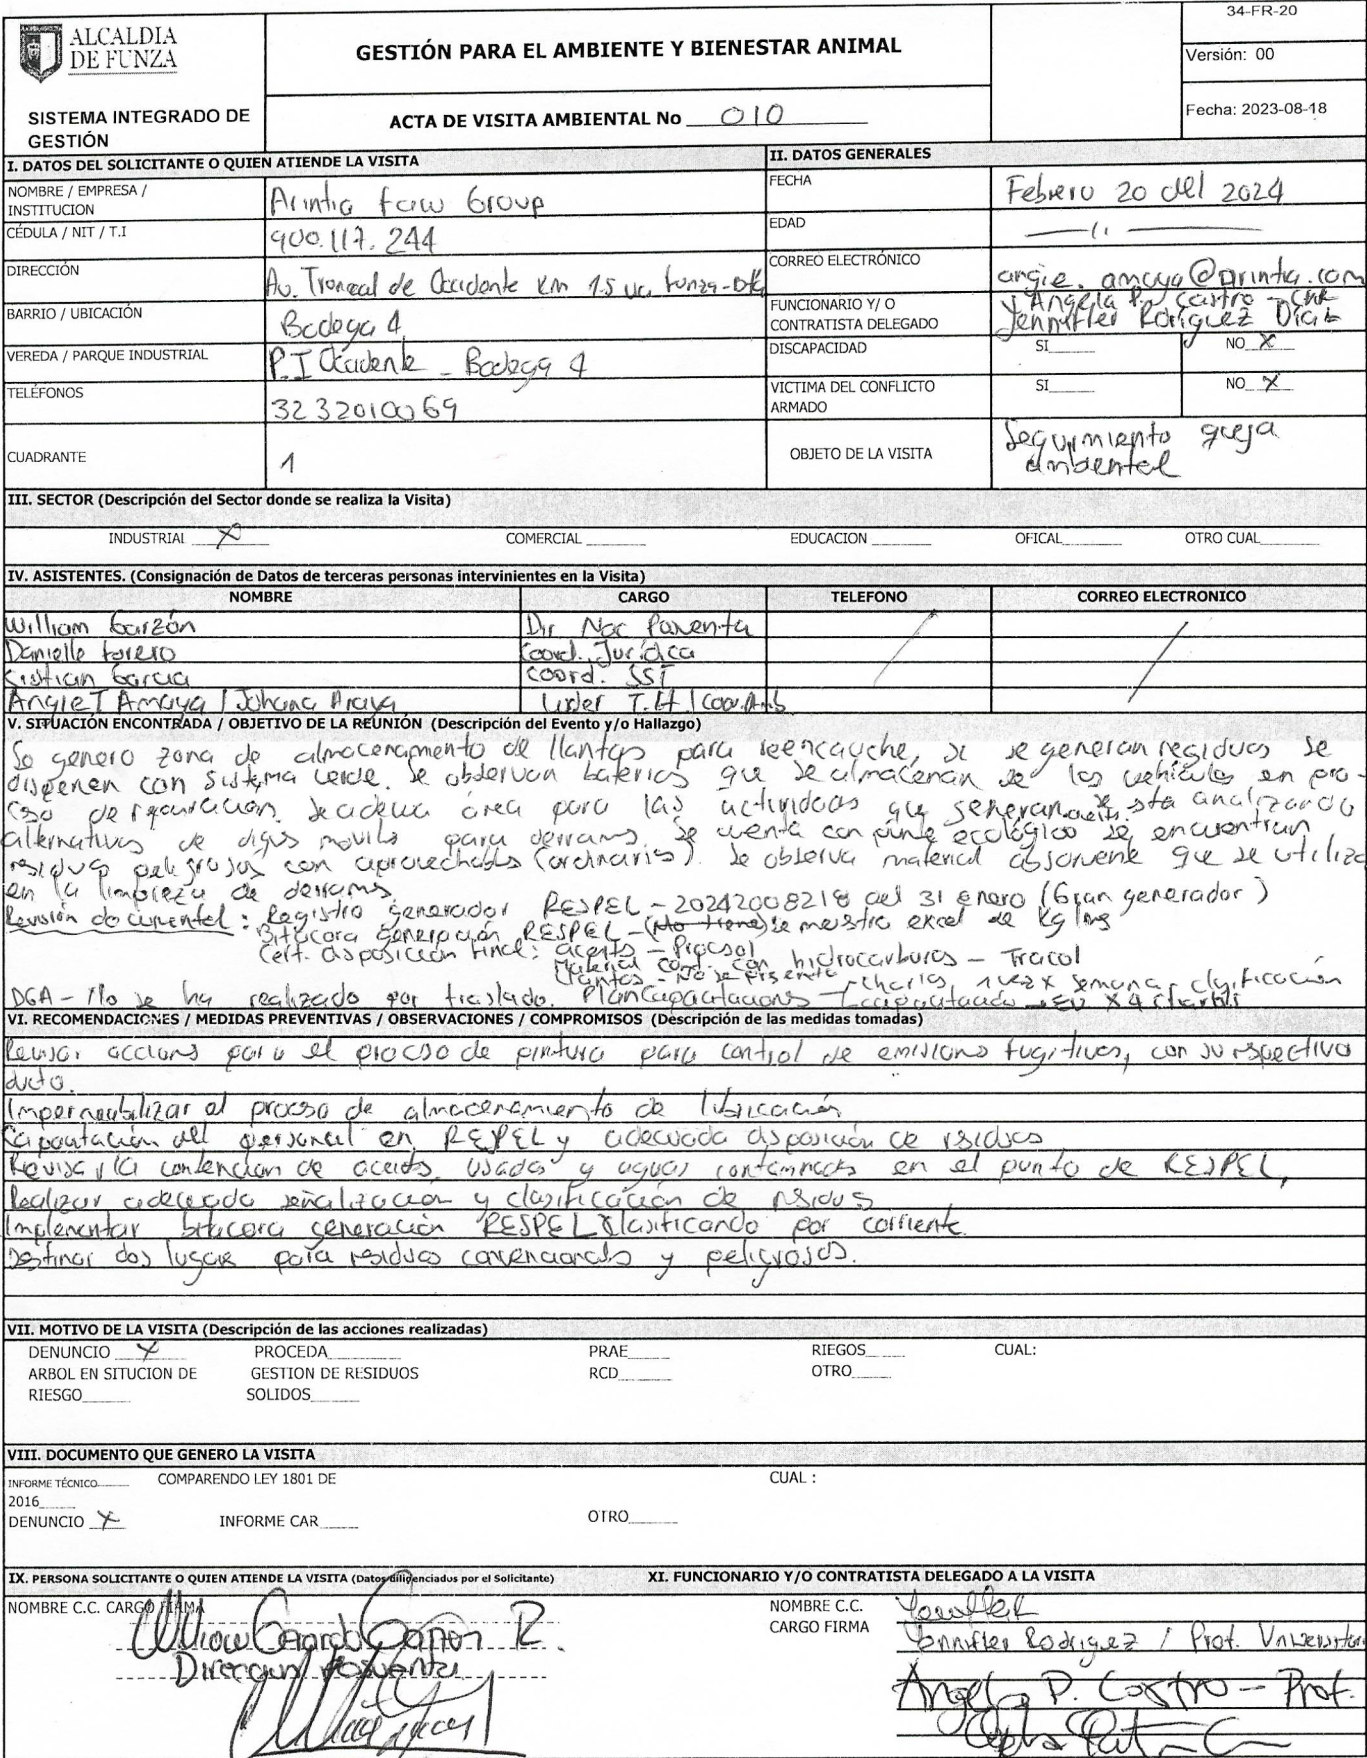 34-FR-20
ALCALDIA
DE FUNZA
GESTIÓN PARA EL AMBIENTE Y BIENESTAR ANIMAL
Versión: 00
SISTEMA INTEGRADO DE
GESTIÓN
ACTA DE VISITA AMBIENTAL No 010
Fecha: 2023-08-18
I. DATOS DEL SOLICITANTE O QUIEN ATIENDE LA VISITA
II. DATOS GENERALES
NOMBRE / EMPRESA /
INSTITUCION
Arintia Group
FECHA
Febrero 20 del 2024
CÉDULA / NIT / T.I
900.117.244
EDAD
DIRECCIÓN
Av. Troncal de Occidente Km 1.5 Funza
CORREO ELECTRÓNICO
angie.amaya@arintia.com
BARRIO / UBICACIÓN
Bodega 4
FUNCIONARIO Y/ O
CONTRATISTA DELEGADO
y Angela P. Castro
Jennyffer Rodriguez Diaz
VEREDA / PARQUE INDUSTRIAL
P.I Occidente - Bodega 4
DISCAPACIDAD
SI
NO X
TELÉFONOS
3232010069
VICTIMA DEL CONFLICTO
ARMADO
SI
NO X
CUADRANTE
1
OBJETO DE LA VISITA
Seguimiento queja
ambiental
III. SECTOR (Descripción del Sector donde se realiza la Visita)
INDUSTRIAL X COMERCIAL EDUCACION OFICAL OTRO CUAL
IV. ASISTENTES. (Consignación de Datos de terceras personas intervinientes en la Visita)
NOMBRE CARGO TELEFONO CORREO ELECTRONICO
William Garzón Dir Nac Posventa
Danielle Forero Coord. Jurídica
Cristian Garcia Coord. SST
Angie T Amaya / Johana Araya Lider T.H / Coor.Amb
V. SITUACIÓN ENCONTRADA / OBJETIVO DE LA REUNIÓN (Descripción del Evento y/o Hallazgo)
Se genero zona de almacenamiento de llantas para reencauche, si se generan residuos se
disponen con sistema verde. Se observan baterias que se almacenan de los vehículos en pro-
ceso de reparación. Se adecua área para las actividades que generan aceite. Se sta analizando
alternativas de diques moviles para derrames. Se cuenta con punto ecológico se encuentran
residuos peligrosos con aprovechables (ordinarios). Se observa material absorvente que se utiliza
en la limpieza de derrames
Revisión documental: Registro generador RESPEL - 20242008218 del 31 enero (Gran generador)
Bitácora generación RESPEL - (No tiene) se muestra excel de Kg/mes
Cert. disposición final: aceites -
Material cont. con hidrocarburos - Tracol
Llantas - No se presenta
charlas 1 vez x semana clasificación
DGA - No se ha realizado por traslado. Plan Capacitaciones
VI. RECOMENDACIONES / MEDIDAS PREVENTIVAS / OBSERVACIONES / COMPROMISOS (Descripción de las medidas tomadas)
Revisar acciones para el proceso de pintura para control de emisiones fugitivas, con su respectivo
ducto.
Impermeabilizar el proceso de almacenamiento de lubricación
Capacitación del personal en RESPEL y adecuada disposición de residuos
Revisar la contención de aceites usados y aguas contaminadas en el punto de RESPEL,
Realizar adecuada señalización y clasificación de residuos
Implementar bitacora generación RESPEL clasificando por corriente.
Destinar dos lugares para residuos convencionales y peligrosos.
VII. MOTIVO DE LA VISITA (Descripción de las acciones realizadas)
DENUNCIO X PROCEDA PRAE RIEGOS CUAL:
ARBOL EN SITUCION DE GESTION DE RESIDUOS RCD OTRO
RIESGO SOLIDOS
VIII. DOCUMENTO QUE GENERO LA VISITA
INFORME TÉCNICO COMPARENDO LEY 1801 DE CUAL :
2016
DENUNCIO X INFORME CAR OTRO
IX. PERSONA SOLICITANTE O QUIEN ATIENDE LA VISITA (Datos diligenciados por el Solicitante)
XI. FUNCIONARIO Y/O CONTRATISTA DELEGADO A LA VISITA
NOMBRE C.C. CARGO FIRMA
R.
Posventa
NOMBRE C.C.
CARGO FIRMA
Jennyffer Rodriguez / Prof. Universitario
Angela P. Castro - Prof.